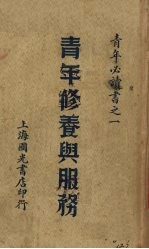 青年必讀書之一
青年修養與服務
上海國光書店印行